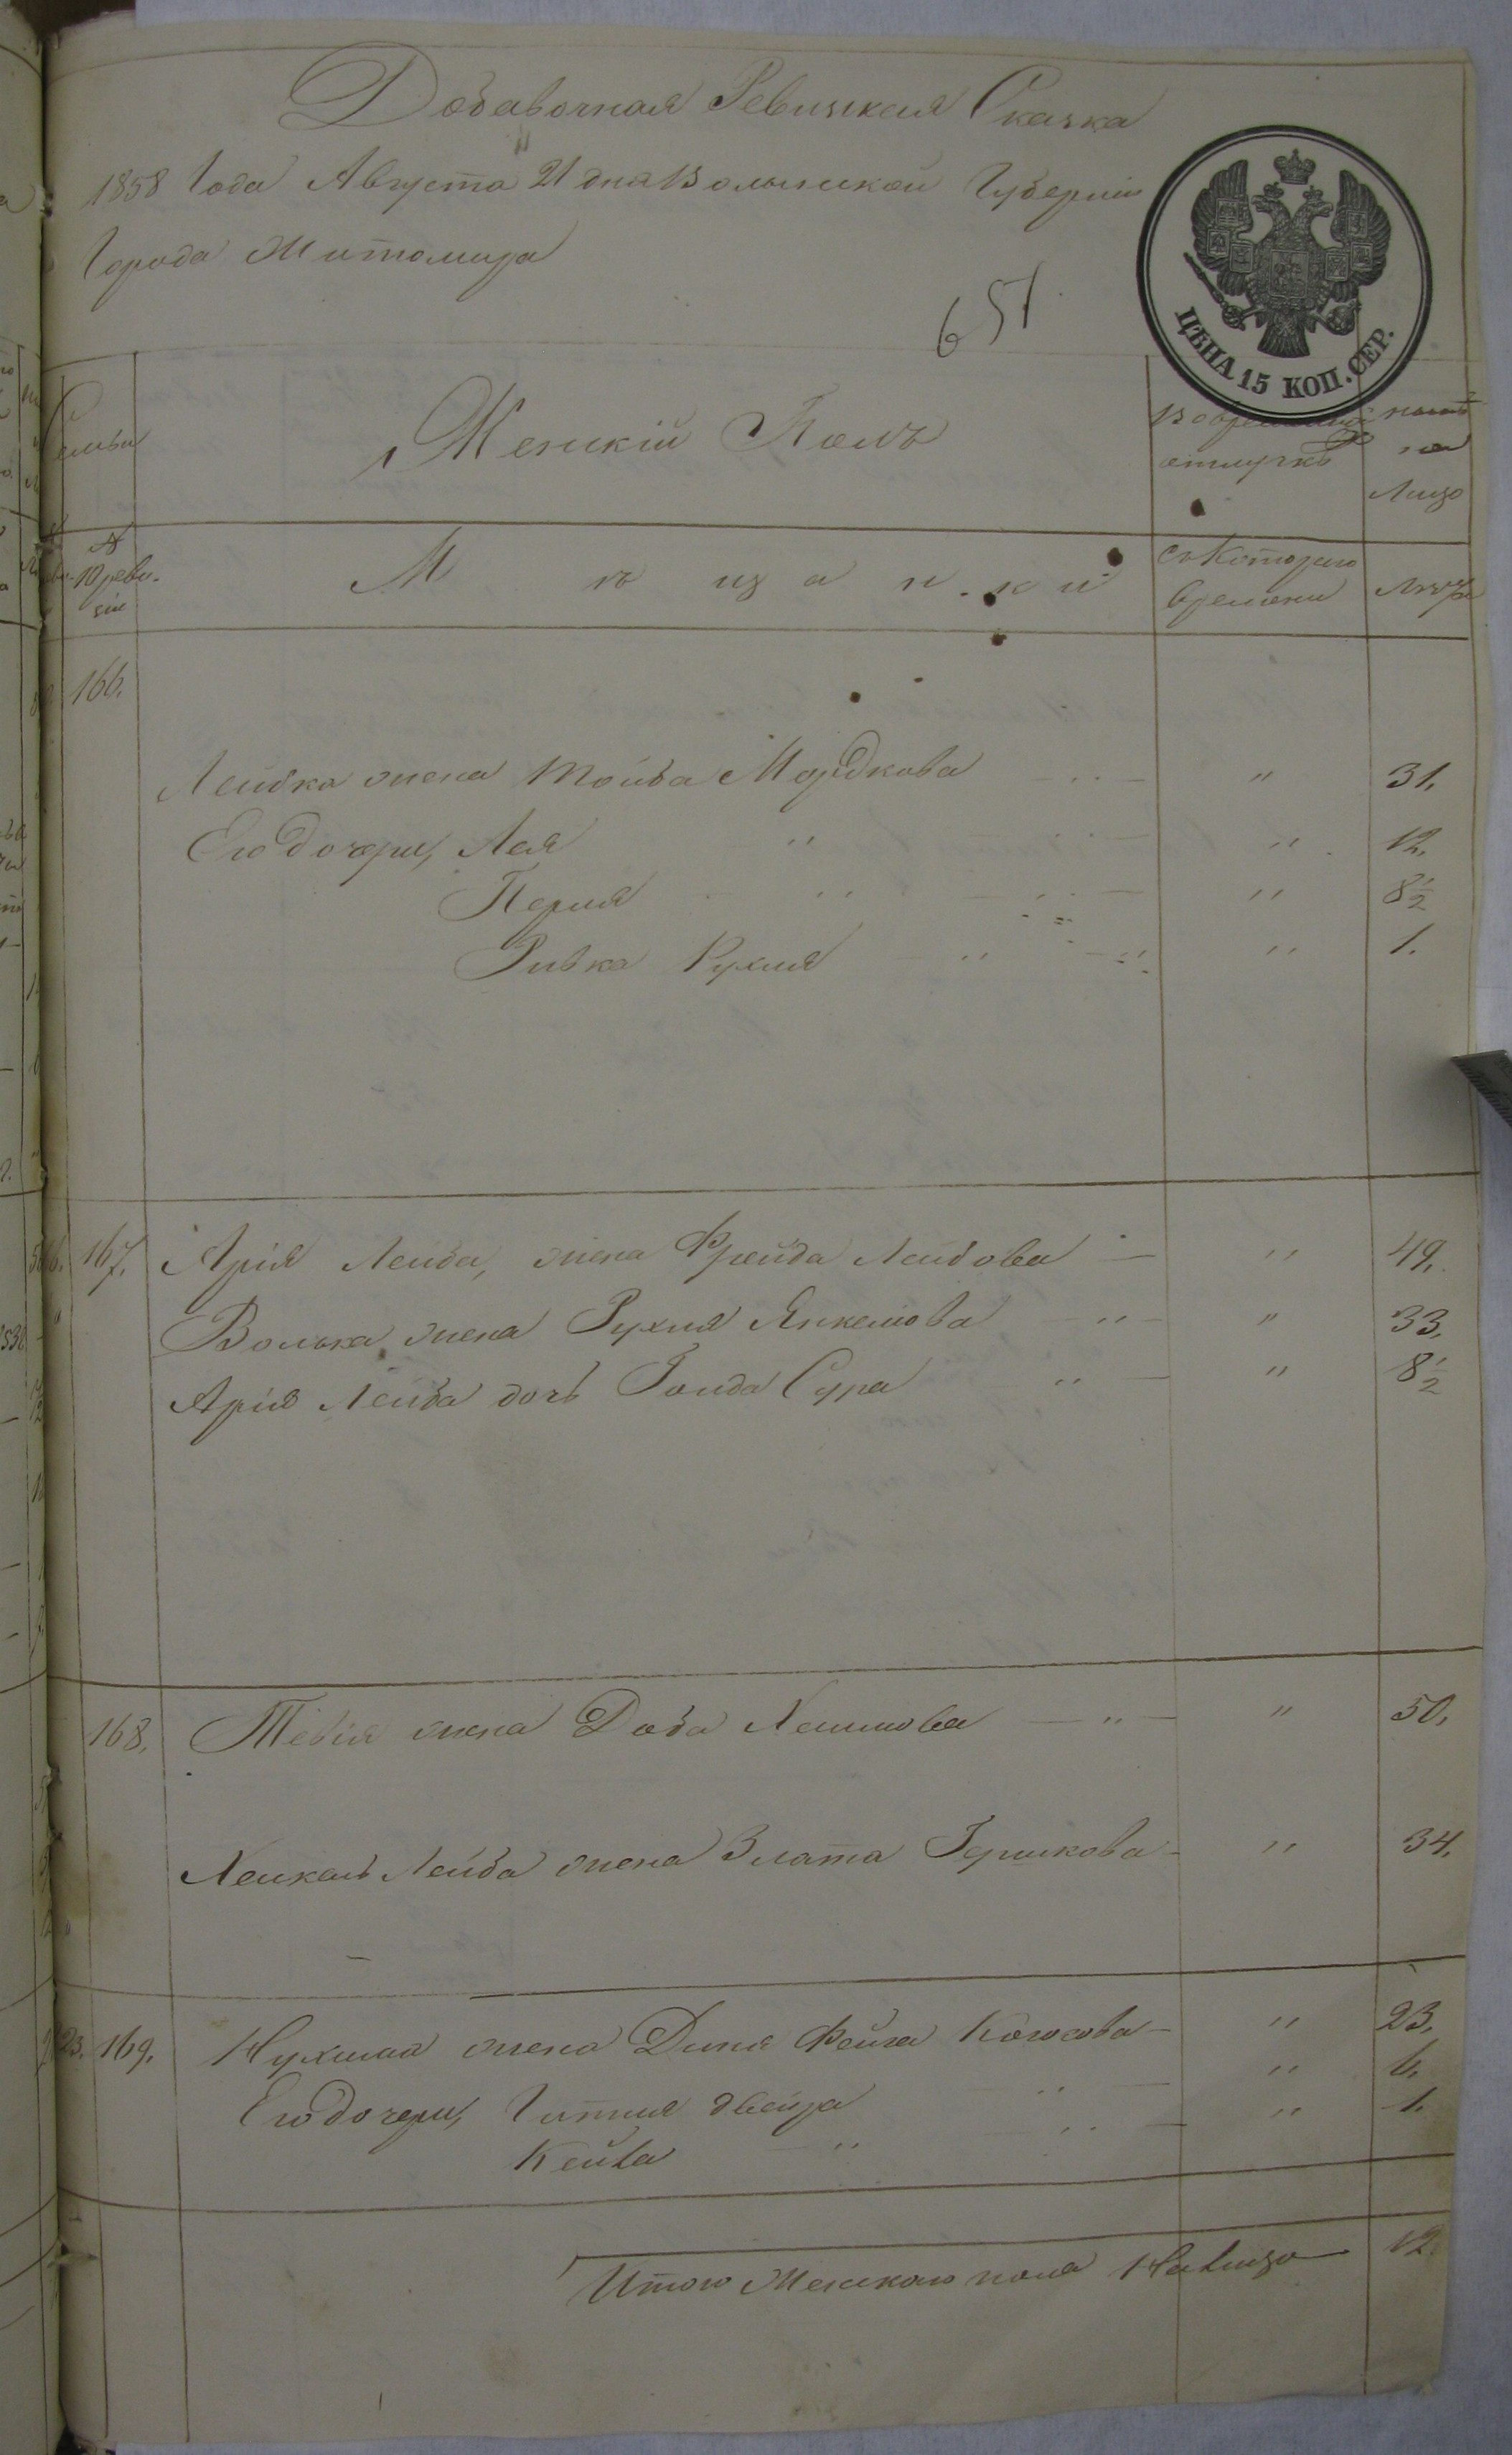 Добавочная Ревизская Сказка
1858 Года Августа 21 дня Волынской Губерніи
Города Житомира
651
ЦѢНА 15 КОП. СЕР.
Семьи
Женскій Полъ
Во временной отлучкѣ
на Лицо
№ 10 ревизіи
Мѣщанки
Съ Котораго времени
Лѣта
166.
Лейбка жена Тойба Мордкова " 31.
Его дочери, Лея " " 12.
Перля " " 8 1/2
Ривка Рухля " " 1.
167. Арія Лейба, жена Фрейда Лейбова " 49.
Волька жена Рухля Янкелюва " " 33.
Арія Лейба дочь Гольда Сура " " 8 1/2
168. Тевія жена Доба Хаимова " " 50.
Хаскель Лейба жена Злата Гершкова " 34.
23. 169. Нухима жена Диня Фейга " 23.
Его дочери, Гитля Двейра " " 6.
Кейла " " " 1.
Итого Женскаго пола На лицо 12.